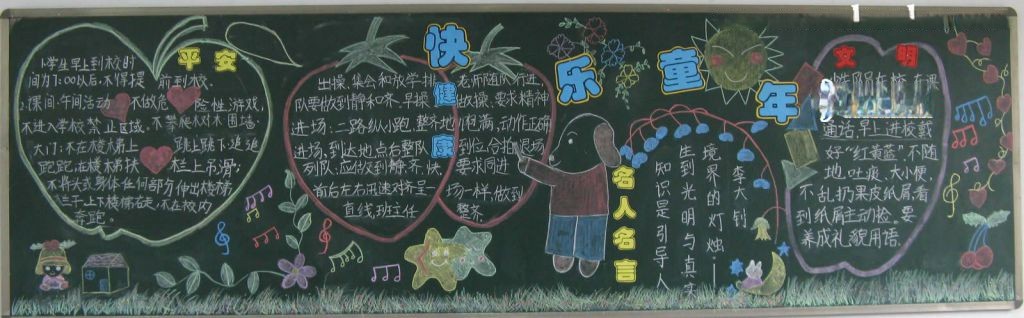 平安
小学生早上到校时
间为7:00以后,不得提 前到校。
2.课间、午间活动 不做危 险性游戏,
不进入学校禁止区域。不攀爬树木围墙、
大门;不在楼梯上 跳上跳下追追
跑跑,在楼梯扶 栏上吊滑;
不将头或身体任何部分伸出楼梯
上下楼梯偏右走,不在校内
奔跑。
快乐童年
健康
出操、集会和放学排
队要做到静和齐,早操
进场:二路纵小跑,整齐地
进场,到达地点右整队
列队,应做到静、齐、快,
前后左右迅速对齐呈一
直线,班主任
老师随队行进,
做操,要求精神
饱满,动作正确
到位合拍,退场
要求同进
场一样,做到
整齐。
名人名言
知识是引导人
生到光明与真实
境界的灯烛。——
李大钊
文明
通话早上进校戴
好“红黄蓝”,不随
地吐痰、大小便,
不乱扔果皮纸屑看
到纸屑主动捡,要
养成礼貌用语.